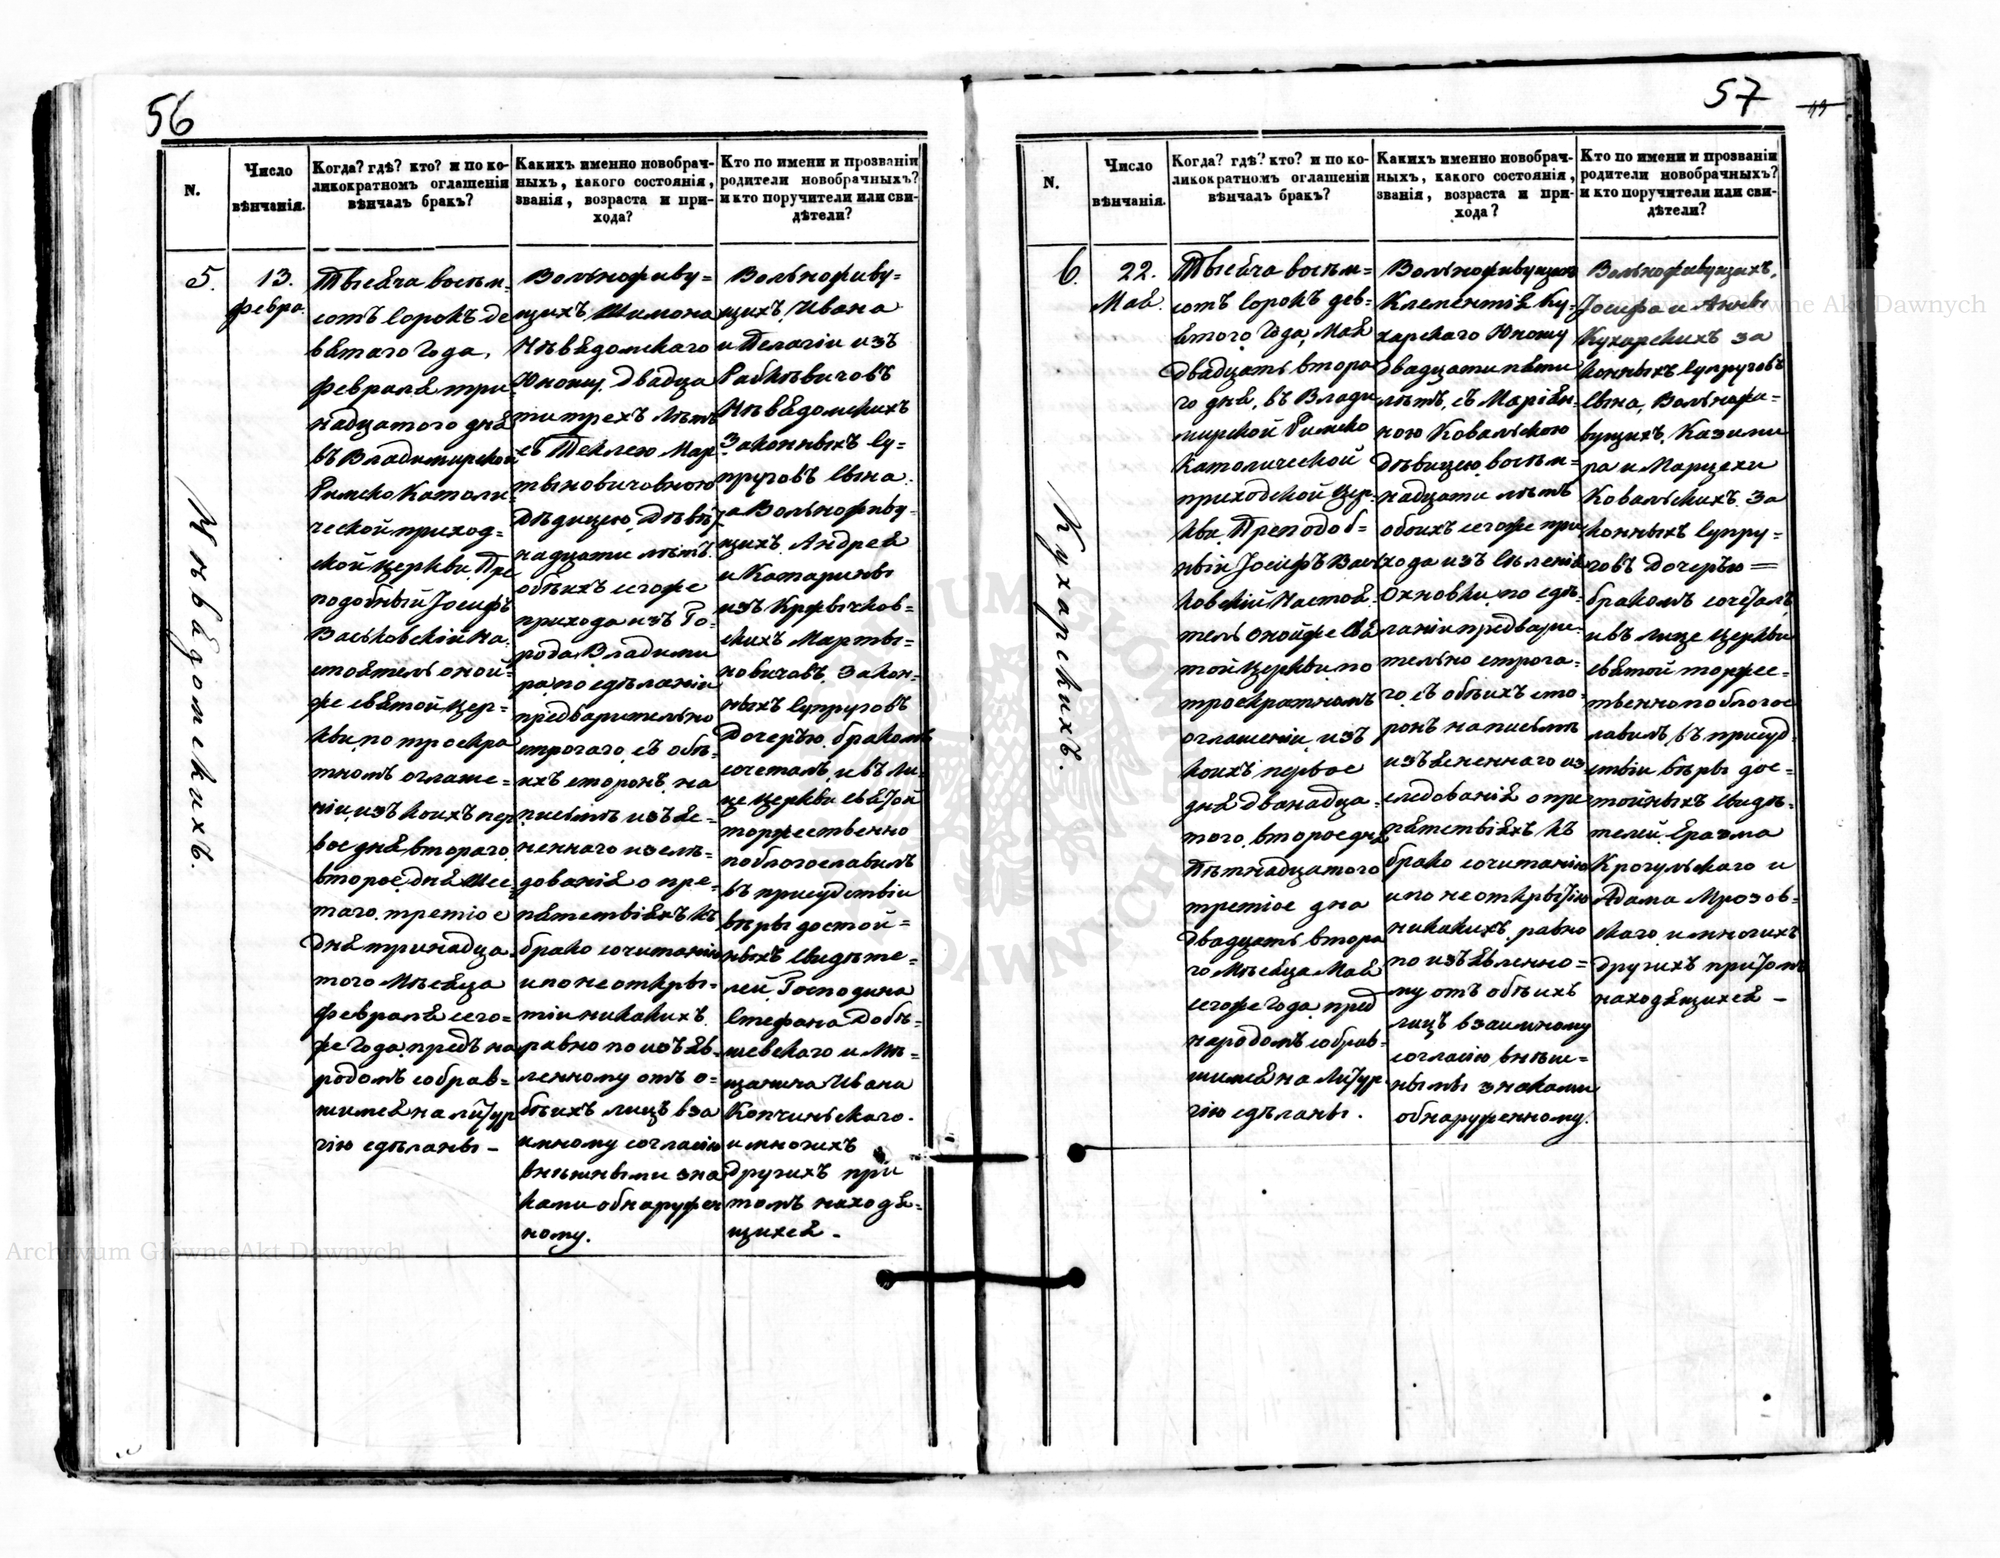 56
N.
Число
вѣнчанія.
Когда? гдѣ? кто? и по ко-
ликократномъ оглашеніи
вѣнчалъ бракъ?
Какихъ именно новобрач-
ныхъ, какого состоянія,
званія, возраста и при-
хода?
Кто по имени и прозванію
родители новобрачныхъ?
и кто поручители или сви-
дѣтели?
5.
13.
Февра.
Невядомскихъ.
Тысяча восѣм-
сотъ сорокъ де
вятаго Года,
Февраля три
надцатого дня
въ Владимирской
Римско Католи
ческой приход-
ской церкви, Пре
подобный Іосифъ
Васьковскій На
стоятель оной-
же святой Цер-
кви, по троекра
тномъ оглаше-
ніи, изъ коихъ пер
вое дня втораго,
второе, дня Шес
таго, третіое
дня тринадца
того Мѣсяца
Февраля сего-
же Года, предъ на
родомъ собрав-
шимся на літур
гію сдѣланы -
Вольноживу=
щихъ Шимона
Невядомскаго
Юношу, двадца
ти трехъ лѣтъ
съ Теклею Мар
тыновичовною
Дѣвицею, Девят
надцати лѣтъ.
обѣихъ сегоже
прихода изъ Го-
рода Владими
ра, по сдѣланіи
предварительно
строгаго, съ обѣ-
ихъ сторонъ, на
письмѣ изъяс-
неннаго изслѣ=
дованія о пре-
пятствіяхъ къ
брако сочитанію
и по не откры-
тіи никакихъ.
равно по изъяв-
ленному отъ о-
бѣихъ лицъ вза
имному согласію
внѣшными зна
ками обнаружен
ному.
Вольноживу-
щихъ, Ивана
и Пелагіи изъ
Рабкѣвичовъ
Невядомскихъ
Законныхъ Су-
пруговъ Сына.
а Вольноживу-
щихъ, Андрея
и Катарины
изъ Кржычков-
скихъ Марты-
новичовъ, Закон-
ныхъ Супруговъ
Дочерью, бракомъ
сочеталъ, и въ ли-
це Церкви святой
торжественно
поблогославилъ
въ присудствіи
вѣры достой-
ныхъ свидѣте-
лей, Господина
Стефана Добѣ-
шевскаго и Мѣ-
щанина Ивана
Копчинскаго.
и многихъ
другихъ при
томъ находя-
щихся -
57
49
N.
Число
вѣнчанія.
Когда? гдѣ? кто? и по ко-
ликократномъ оглашеніи
вѣнчалъ бракъ?
Какихъ именно новобрач-
ныхъ, какого состоянія,
званія, возраста и при-
хода?
Кто по имени и прозванію
родители новобрачныхъ?
и кто поручители или сви-
дѣтели?
6.
22.
Мая.
Кухарскихъ.
Тысяча восѣм-
сотъ сорокъ дев-
ятого, Года, Мая
двадцать втора
го дня, въ Влади
мирской Римско
Католической
приходской Цер-
кви, Преподоб-
ный Іосифъ Вась
ковскій Настоя-
тель онойже свя
той Церкви, по
троекратномъ
оглашеніи, изъ
коихъ первое
дня дванадца-
того, второе дня
Пятнадцатого
третіое дня
двадцать втора
го Мѣсяца Мая
сегоже Года, пред
народомъ собрав-
шимся на Літур
гію сдѣланы.
Вольноживущихъ
Клементія Ку-
харскаго Юношу
двадцати пяти
лѣтъ, съ Маріян-
ною Ковальскою
Дѣвицею, восѣм-
надцати лѣтъ
обѣихъ сегоже при
хода изъ Селенія
Охновки, по сдѣ-
ланіи предвари-
тельно строга-
го, съ обѣихъ сто-
ронъ на письмѣ
изъясненнаго из
следованія о пре
пятствіяхъ къ
брако сочитанію
и по не открытію
никакихъ, равно
по изъявленно-
му отъ обѣихъ
лицъ взаимному
согласію, внѣш-
ными знаками
обнаруженному.
Вольноживущихъ,
Іосифа и Анны
Кухарскихъ за
конныхъ супруговъ
Сына, Вольножи-
вущихъ, Казими
ра и Марцели
Ковальскихъ, За
конныхъ Супру-
говъ Дочерью =
бракомъ сочеталъ
и въ лице Церкви
святой торжес-
твенно поблогос
лавилъ, въ присуд-
ствіи вѣры дос-
тойныхъ свидѣ-
телей, Еразма
Крогульскаго и
Адама Мрозов-
скаго, и многихъ
другихъ притомъ
находящихся -
Archiwum Główne Akt Dawnych
Archiwum Główne Akt Dawnych
ARCHIWUM GŁÓWNE AKT DAWNYCH